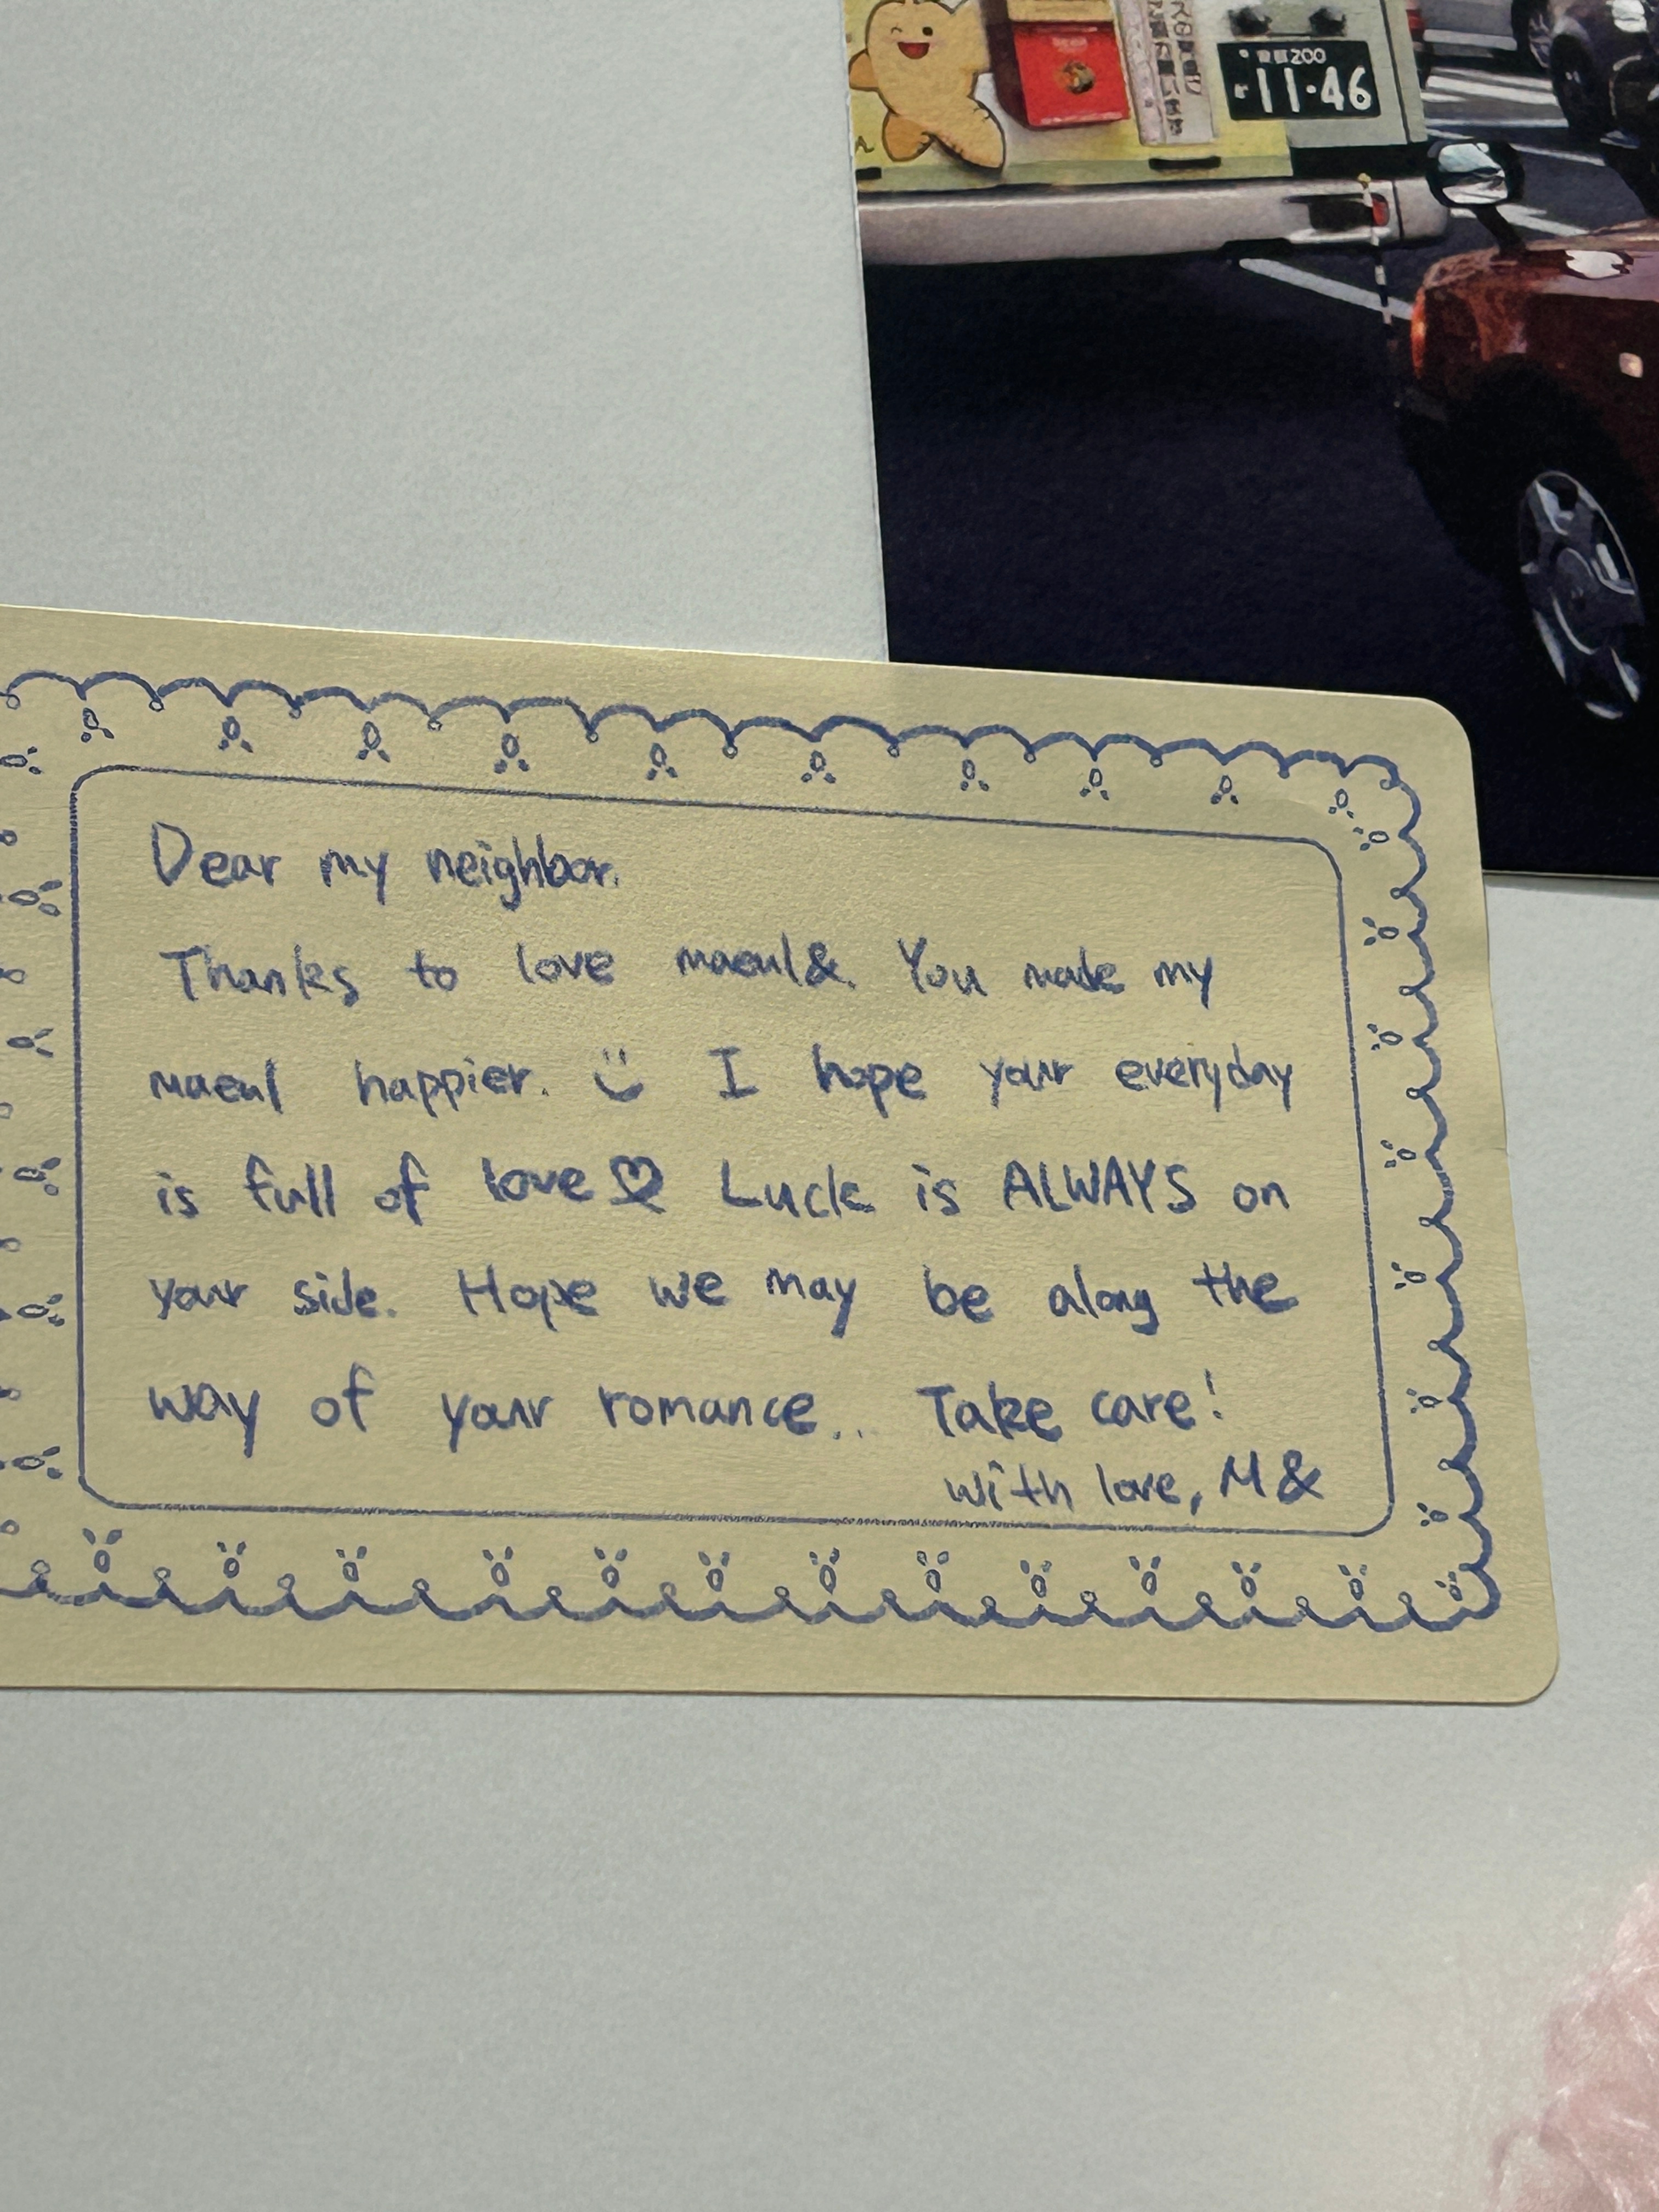 200
11-46
Dear my neighbor.
Thanks to love maeul&. You make my
maeul happier. :) I hope your everyday
is full of love♡ Luck is ALWAYS on
your side. Hope we may be along the
way of your romance... Take care!
with love, M&